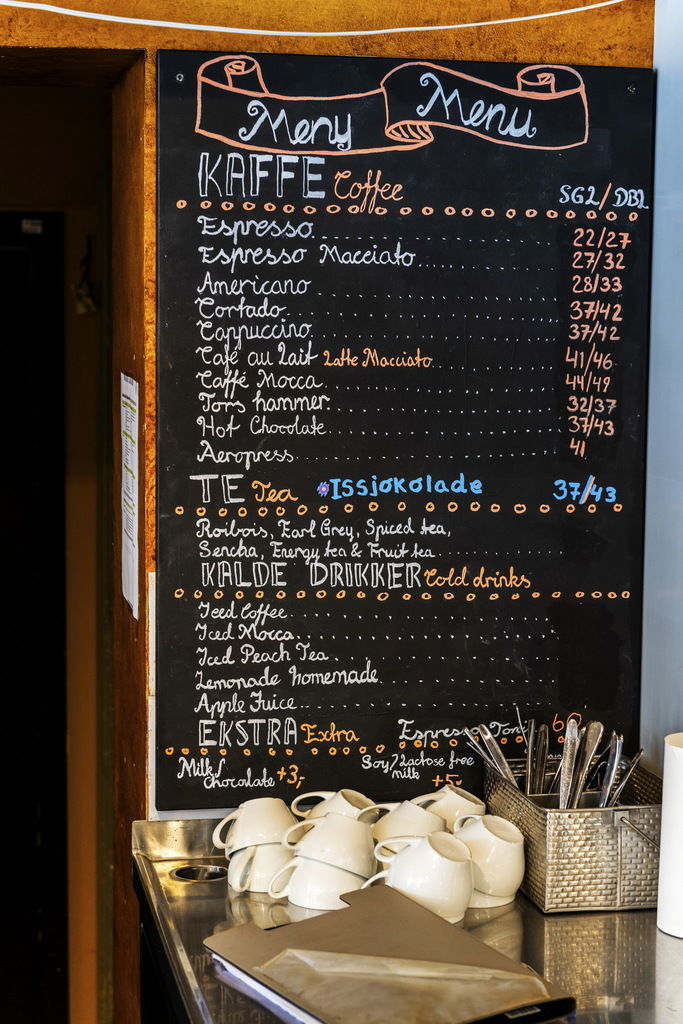 Meny Menu
KAFFE Coffee SGL/DBL
Espresso 22/27
Espresso Macciato 27/32
Americano 28/33
Cortado 37/42
Cappuccino 37/42
Café au Lait Latte Macciato 41/46
Caffé Mocca 44/49
Tors hammer 32/37
Hot Chocolate 37/43
Aeropress 41
TE Tea *ISSjokolade 37/43
Roibois, Earl Grey, Spiced tea,
Sencha, Energy tea & Fruit tea
KALDE DRIKKER Cold drinks
Iced Coffee
Iced Mocca
Iced Peach Tea
Lemonade homemade
Apple Juice
EKSTRA Extra Espresso Toni
Milk/ Soy/Lactose free
Chocolate +3,- milk +5,-